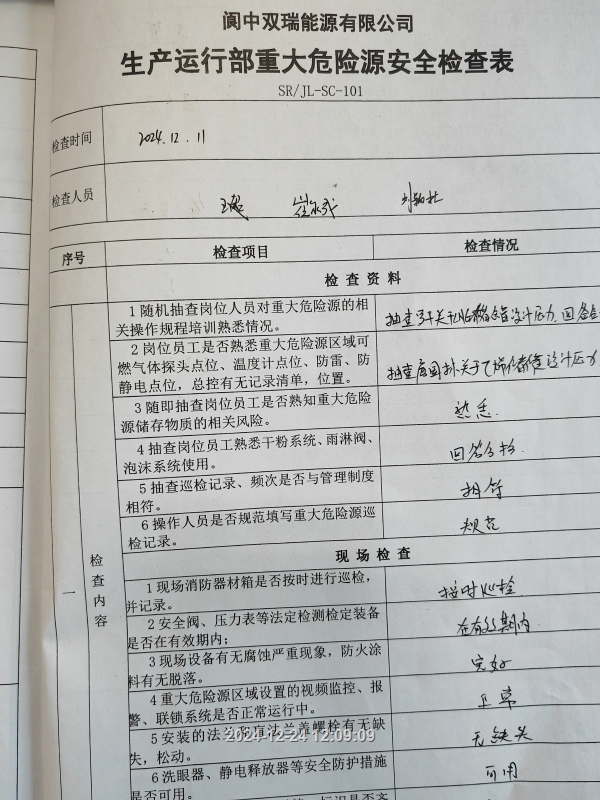 阆中双瑞能源有限公司
生产运行部重大危险源安全检查表
SR/JL-SC-101
检查时间 2024.12.11
检查人员
序号 检查项目 检查情况
检查资料
1 随机抽查岗位人员对重大危险源的相
关操作规程培训熟悉情况。
抽查 关于 设计压力 回答
2 岗位员工是否熟悉重大危险源区域可
燃气体探头点位、温度计点位、防雷、防
静电点位，总控有无记录清单，位置。
抽查 关于 设计压力
3 随即抽查岗位员工是否熟知重大危险
源储存物质的相关风险。
熟悉
4 抽查岗位员工熟悉干粉系统、雨淋阀、
泡沫系统使用。
回答合格
5 抽查巡检记录、频次是否与管理制度
相符。
相符
6 操作人员是否规范填写重大危险源巡
检记录。
规范
一 检查内容
现场检查
1 现场消防器材箱是否按时进行巡检，
并记录。
按时巡检
2 安全阀、压力表等法定检测检定装备
是否在有效期内；
在有效期内
3 现场设备有无腐蚀严重现象，防火涂
料有无脱落。
完好
4 重大危险源区域设置的视频监控、报
警、联锁系统是否正常运行中。
正常
5 安装的法兰 盲法兰盖螺栓有无缺
失，松动。
无缺失
2024-12-24 12:09:09
6 洗眼器、静电释放器等安全防护措施
是否可用。
可用
标识是否齐